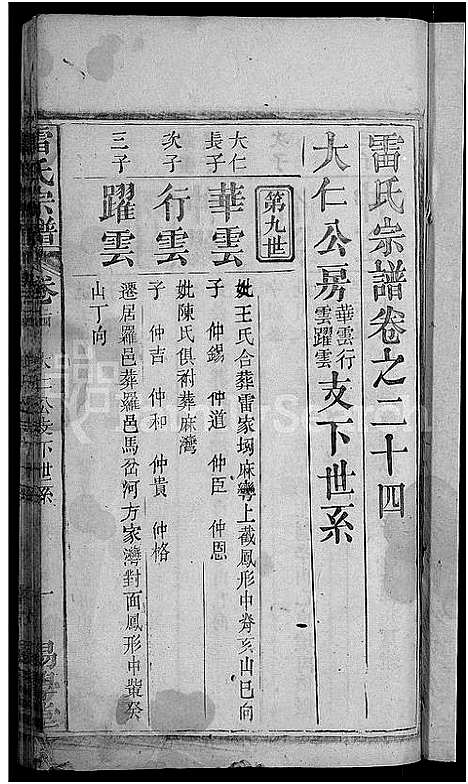 雷氏宗譜卷之二十四
大仁公房華雲行雲躍雲支下世系
第九世
大仁長子
華雲
妣王氏合葬雷家坳麻灣上截鳳形中脊亥山巳向
子 仲錫 仲道 仲臣 仲恩
次子
行雲
妣陳氏俱祔葬麻灣
子 仲吉 仲和 仲貴 仲格
三子
躍雲
遷居羅邑葬羅邑馬岔河方家灣對面鳳形中嘴癸
山丁向
雷氏宗譜
卷二四
大仁公支下世系
一